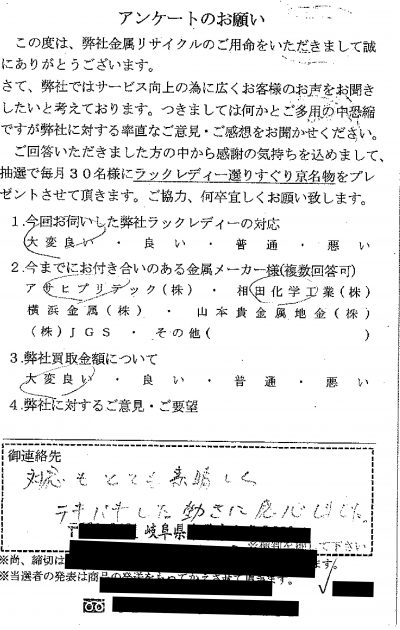 アンケートのお願い
この度は、弊社金属リサイクルのご用命をいただきまして誠
にありがとうございます。
さて、弊社ではサービス向上の為に広くお客様のお声をお聞き
したいと考えております。つきましては何かとご多用の中恐縮
ですが弊社に対する率直なご意見・ご感想をお聞かせください。
ご回答いただきました方の中から感謝の気持ちを込めまして、
抽選で毎月30名様にラックレディー選りすぐり京名物をプレ
ゼントさせて頂きます。ご協力、何卒宜しくお願い致します。
1.今回お伺いした弊社ラックレディーの対応
大変良い ・ 良い ・ 普通 ・ 悪い
2.今までにお付き合いのある金属メーカー様(複数回答可)
アサヒプリテック(株) ・ 相田化学工業(株)
横浜金属(株) ・ 山本貴金属地金(株)
(株)JGS ・ その他( )
3.弊社買取金額について
大変良い ・ 良い ・ 普通 ・ 悪い
4.弊社に対するご意見・ご要望
御連絡先
対応もとても素晴しく
テキパキした動きに感心しました。
〒 岐阜県
※尚、締切は ます。
※当選者の発表は商品の発送をもってかえさせて頂きます。